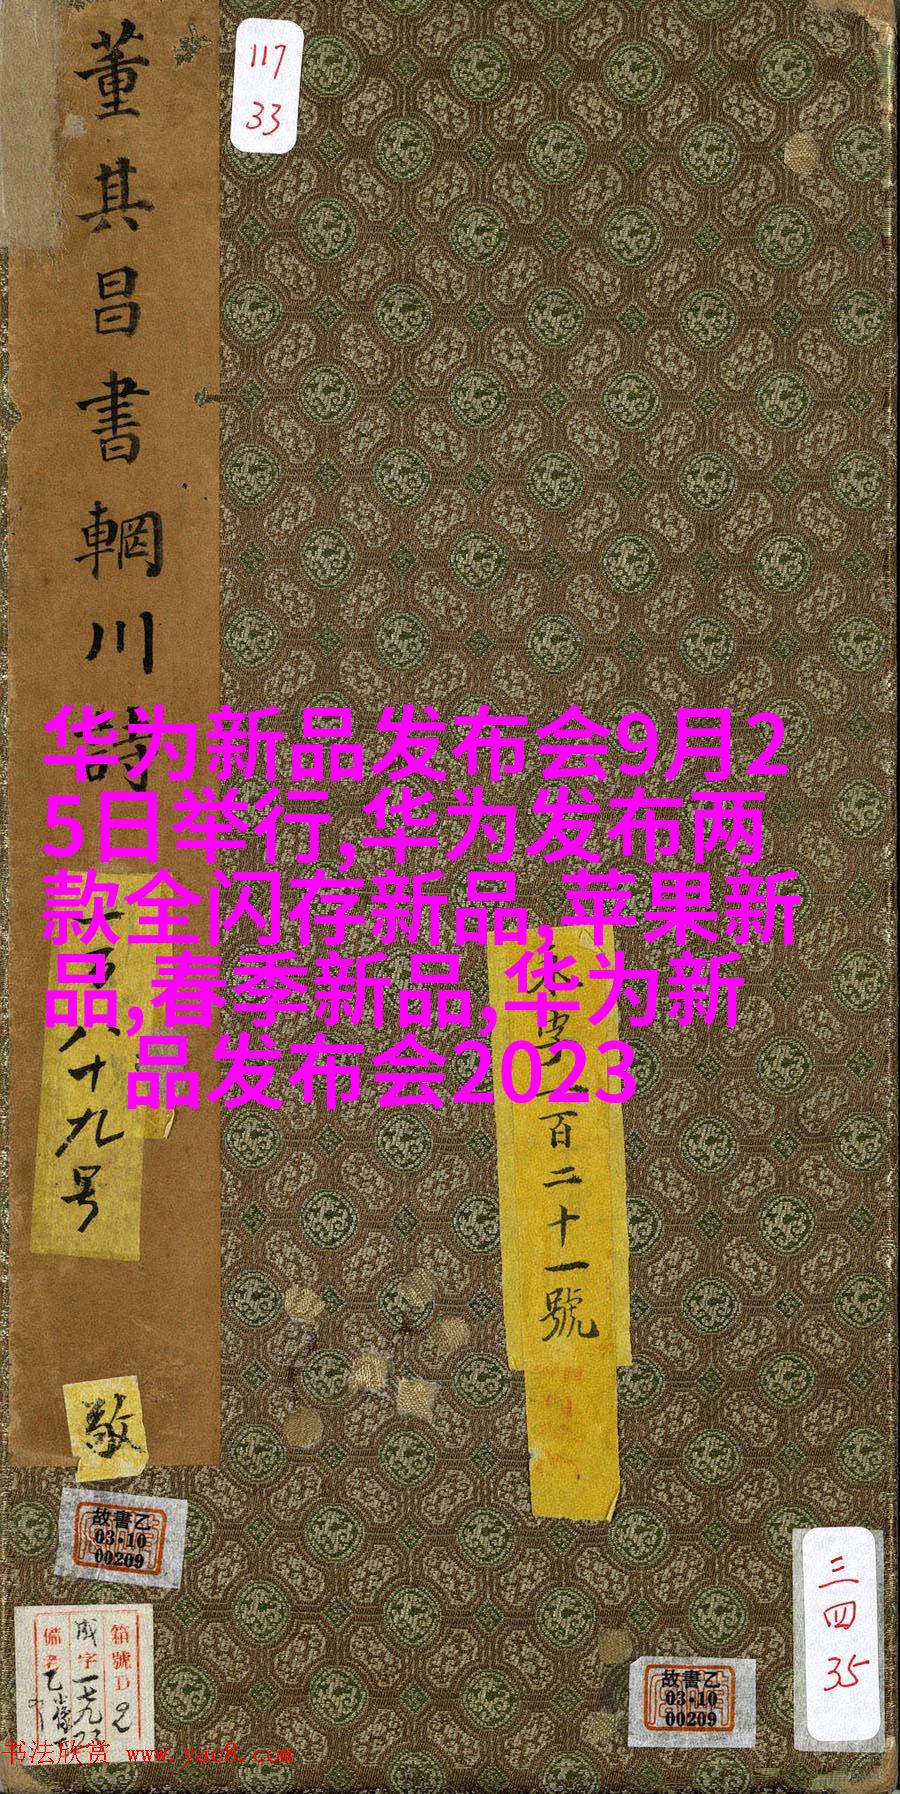 董其昌書輞川詩
117
33
华为新品发布会9月2
5日举行,华为发布两
款全闪存新品,苹果新
品,春季新品,华为新
品发布会2023
八十九号
百二十一號
敬
故書乙
03·10
00209
箱號D2
成字一七九
備考
故書乙
03·10
00209
三四
35
书法欣赏 www.yac8.com